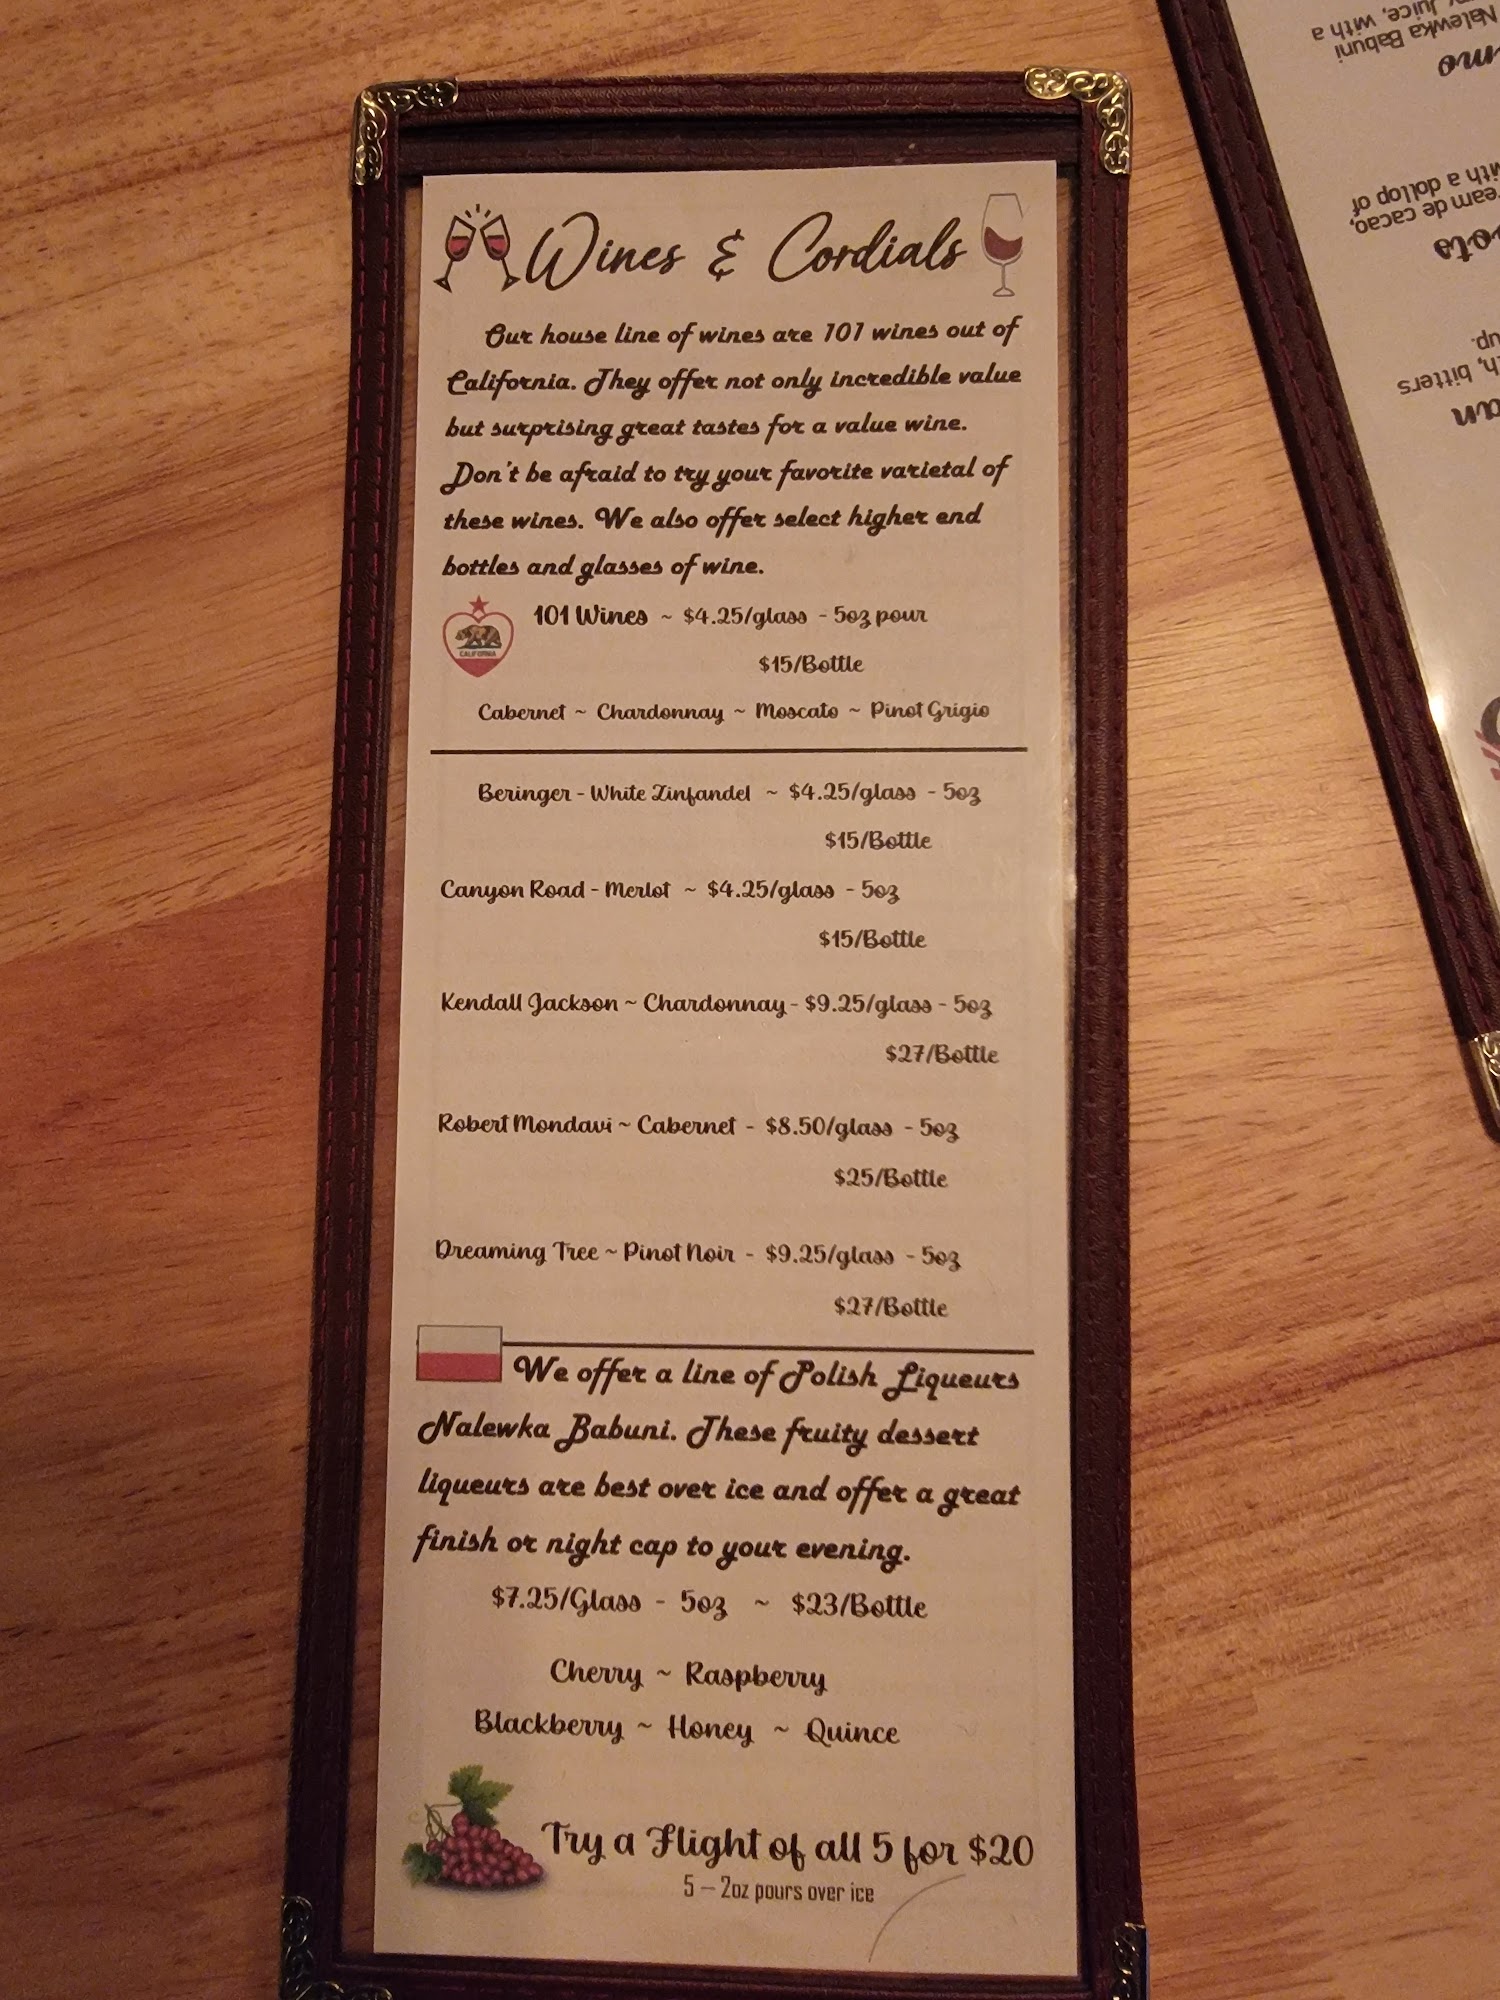 Wines & Cordials
Our house line of wines are 101 wines out of
California. They offer not only incredible value
but surprising great tastes for a value wine.
Don't be afraid to try your favorite varietal of
these wines. We also offer select higher end
bottles and glasses of wine.
CALIFORNIA
101 Wines ~ $4.25/glass - 5oz pour
$15/Bottle
Cabernet ~ Chardonnay ~ Moscato ~ Pinot Grigio
Beringer - White Zinfandel ~ $4.25/glass - 5oz
$15/Bottle
Canyon Road - Merlot ~ $4.25/glass - 5oz
$15/Bottle
Kendall Jackson ~ Chardonnay - $9.25/glass - 5oz
$27/Bottle
Robert Mondavi ~ Cabernet - $8.50/glass - 5oz
$25/Bottle
Dreaming Tree ~ Pinot Noir - $9.25/glass - 5oz
$27/Bottle
We offer a line of Polish Liqueurs
Nalewka Babuni. These fruity dessert
liqueurs are best over ice and offer a great
finish or night cap to your evening.
$7.25/Glass - 5oz ~ $23/Bottle
Cherry ~ Raspberry
Blackberry ~ Honey ~ Quince
Try a Flight of all 5 for $20
5 – 2oz pours over ice
bitters
with a dollop of
de cacao,
Juice, with a
Nalewka Babuni